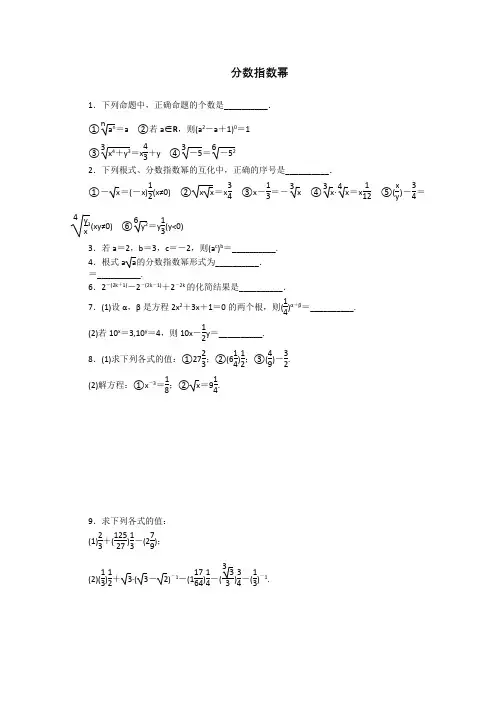 分数指数幂
1．下列命题中，正确命题的个数是__________．
①\sqrt[n]{aⁿ}＝a ②若a∈R，则(a²－a＋1)⁰＝1
③\sqrt[3]{x⁴＋y³}＝x\frac{4}{3}＋y ④\sqrt[3]{－5}＝\sqrt[6]{－5²}
2．下列根式、分数指数幂的互化中，正确的序号是__________．
①－\sqrt{x}＝(－x)\frac{1}{2}(x≠0) ②\sqrt{x\sqrt{x}}＝x\frac{3}{4} ③x－\frac{1}{3}＝－\sqrt[3]{x} ④\sqrt[3]{x}·\sqrt[4]{x}＝x\frac{1}{12} ⑤(\frac{x}{y})－\frac{3}{4}＝
\sqrt[4]{\frac{y}{x}³}(xy≠0) ⑥\sqrt[6]{y²}＝y\frac{1}{3}(y<0)
3．若a＝2，b＝3，c＝－2，则(aᶜ)ᵇ＝__________．
4．根式a\sqrt{a}的分数指数幂形式为__________．
＝__________．
6．2^{－(2k＋1)}－2^{－(2k－1)}＋2^{－2k}的化简结果是__________．
7．(1)设α，β是方程2x²＋3x＋1＝0的两个根，则(\frac{1}{4})^{α＋β}＝__________．
(2)若10ˣ＝3,10ʸ＝4，则10x－\frac{1}{2}y＝__________．
8．(1)求下列各式的值：①27\frac{2}{3}；②(6\frac{1}{4})\frac{1}{2}；③(\frac{4}{9})－\frac{3}{2}.
(2)解方程：①x⁻³＝\frac{1}{8}；②\sqrt{x}＝9\frac{1}{4}.
9．求下列各式的值：
(1)\frac{2}{3}＋(\frac{125}{27})\frac{1}{3}－(2\frac{7}{9})；
(2)(\frac{1}{3})\frac{1}{2}＋\sqrt{3}·(\sqrt{3}－\sqrt{2})⁻¹－(1\frac{17}{64})\frac{1}{4}－(\frac{\sqrt[3]{3}}{3})\frac{3}{4}－(\frac{1}{3})⁻¹.